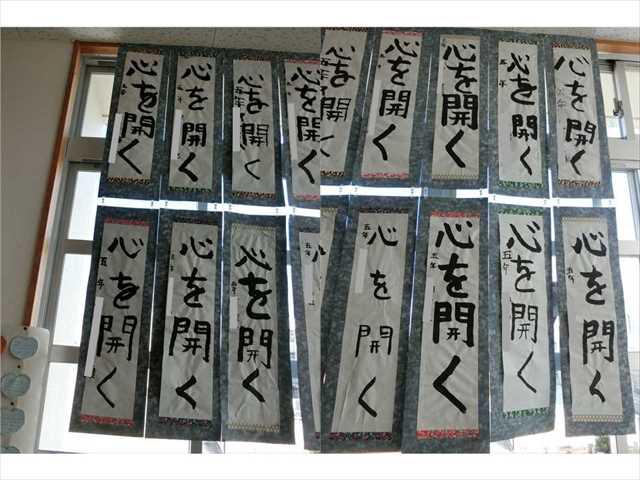 心を開く
心を開く
心を開く
五年
心を開く
五年
心を開く
五年
心を開く
心を開く
心を開く
五年
心を開く
五年
心を開く
五年
心を開く
心を開く
五年
心
五
心を開く
五年
心を開く
五年
心を開く
五年
心を開く
五年